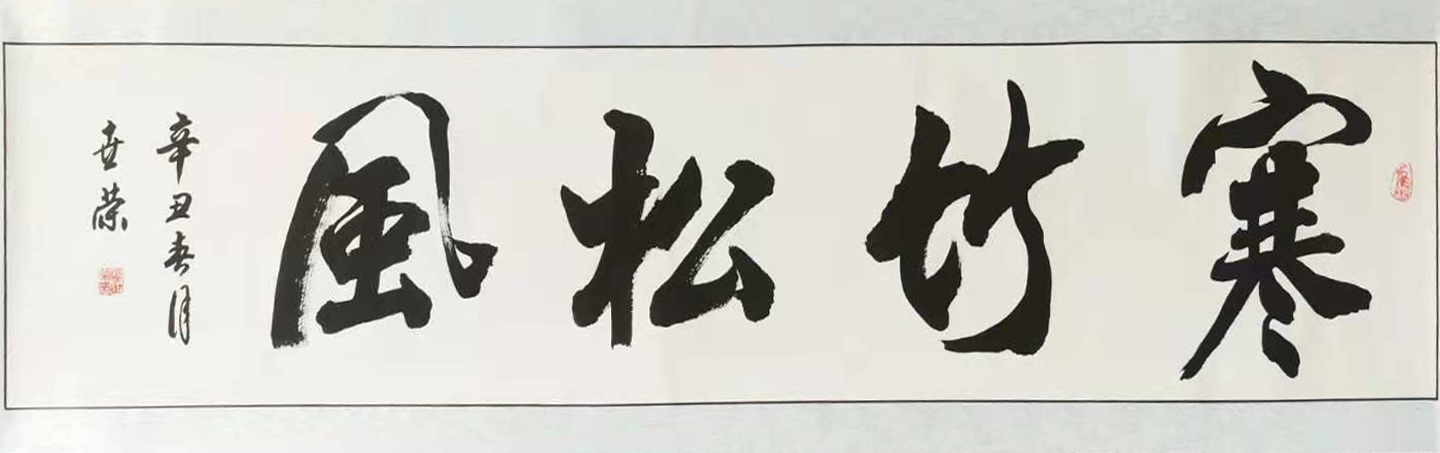 寒竹松風
辛丑春月
世荣